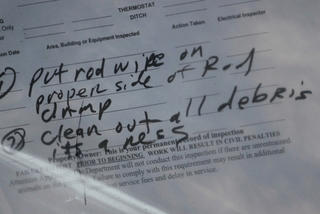 THERMOSTAT
DITCH
Only
Action Taken
Electrical Inspector
tion Date
Area, Building & Equipment Inspected
1) put rod wire on
proper side of Rod
clamp
2) clean out all debris
it's a mess
Property Owner: This is your permanent record of inspection
PRIOR TO BEGINNING WORK WILL RESULT IN CIVIL PENALTIES
Department will not conduct this inspection if there are unrestrained
Failure to comply with this requirement may result in additional
service fees and delay in service.